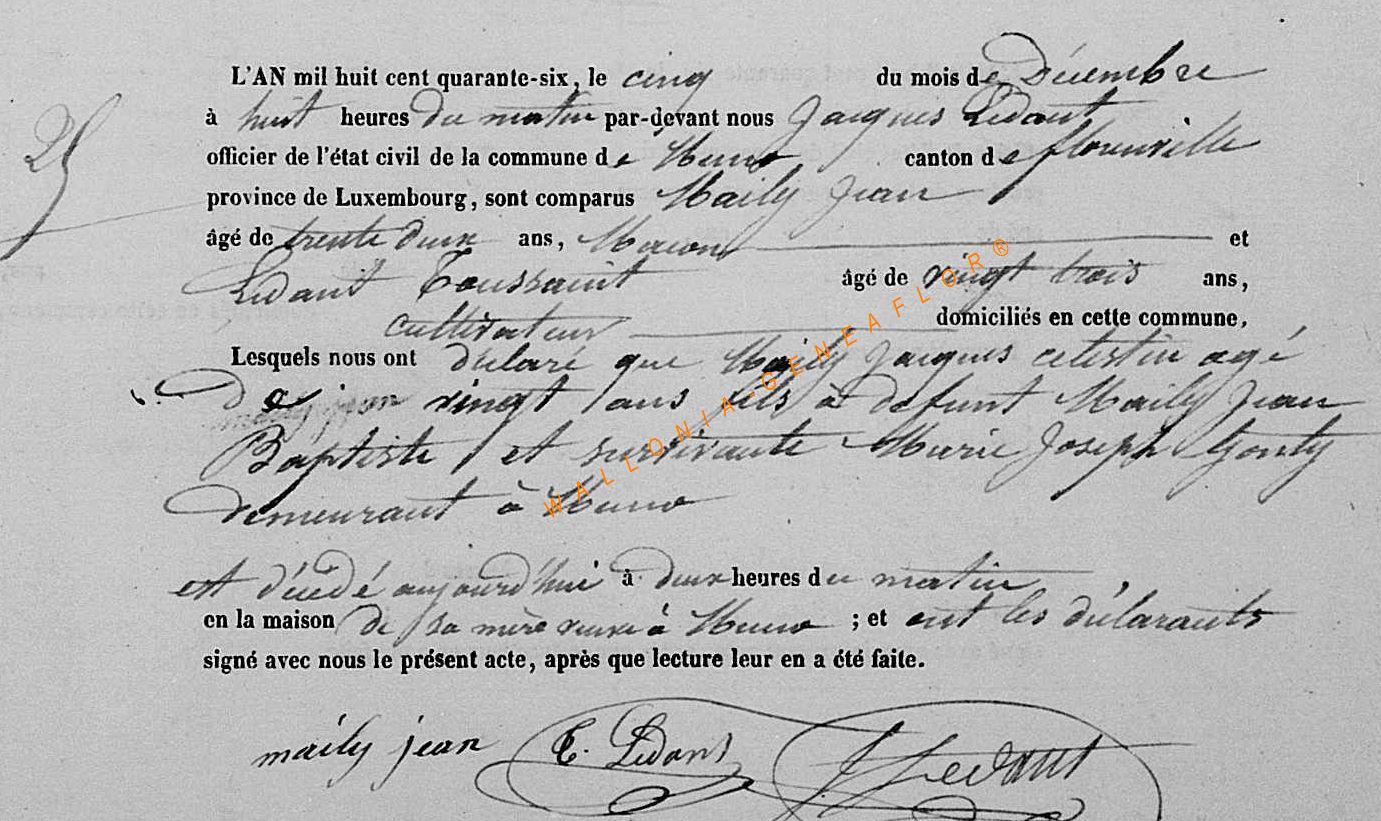 L'AN mil huit cent quarante-six, le cinq du mois de Décembre
25
à huit heures du matin par-devant nous Jacques Ledant
officier de l'état civil de la commune de Muno canton de florenville
province de Luxembourg, sont comparus Maily Jean
âgé de trente deux ans, Macon et
Ledant Toussaint âgé de vingt trois ans,
cultivateur domiciliés en cette commune,
Lesquels nous ont déclaré que Maily Jacques celestin agé
de vingt ans fils à defunt Maily Jean
Baptiste et survivante Marie Joseph Gouty
demeurant à Muno
est décédé aujourd'hui à deux heures du matin
en la maison de sa mère veuve à Muno ; et ont les déclarants
signé avec nous le présent acte, après que lecture leur en a été faite.
maily jean T. Ledant J Ledant
WALLONIA-GENEAFLOR®